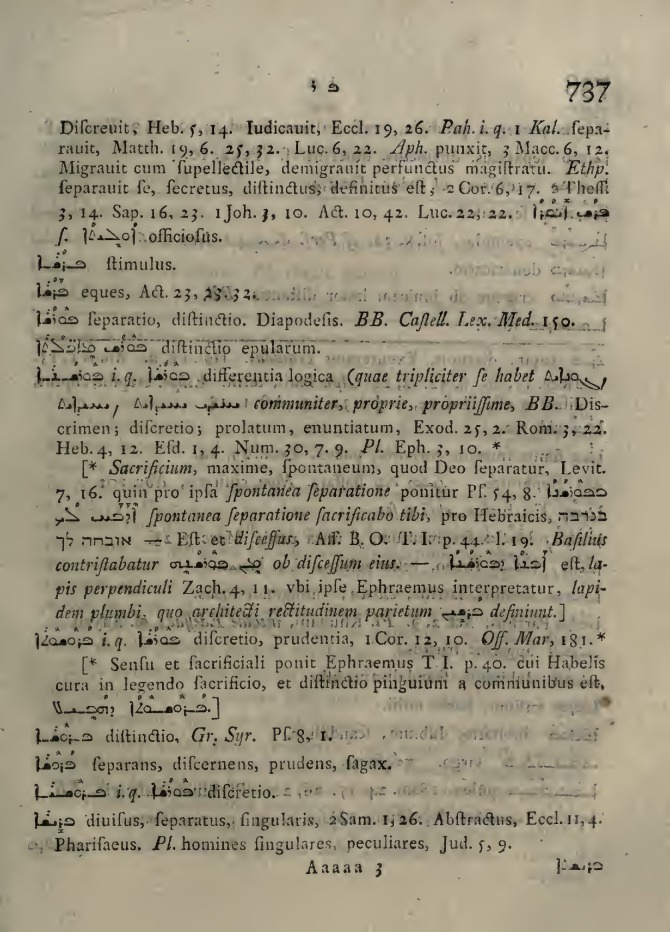 737
Diſcreuit, Heb. 5, 14. Iudicauit, Eccl. 19, 26. Pah. i. q. 1 Kal. ſepa-
rauit, Matth. 19, 6. 25, 32. Luc. 6, 22. Aph. punxit, 3 Macc. 6, 12.
Migrauit cum ſupellectile, demigrauit perfunctus magiſtratu. Ethp.
ſeparauit ſe, ſecretus, diſtinctus, definitus eſt, 2 Cor. 6, 17. 2 Theſſ.
3, 14. Sap. 16, 23. 1 Joh. 3, 10. Act. 10, 42. Luc. 22, 22.
ſ. officioſus.
ſtimulus.
eques, Act. 23, 23. 32.
ſeparatio, diſtinctio. Diapodeſis. BB. Caſtell. Lex. Med. 150.
diſtinctio epularum.
i. q. ܦܘܪܫܐ differentia logica (quae tripliciter ſe habet
communiter, proprie, propriiſſime, BB. Dis-
crimen; diſcretio; prolatum, enuntiatum, Exod. 25, 2. Rom. 3, 22.
Heb. 4, 12. Eſd. 1, 4. Num. 30, 7. 9. Pl. Eph. 3, 10. *
[* Sacrificium, maxime, ſpontaneum, quod Deo ſeparatur, Levit.
7, 16. quin pro ipſa ſpontanea ſeparatione ponitur Pſ. 54, 8. ܒܦܘܪܫܢܐ
ſpontanea ſeparatione ſacrificabo tibi, pro Hebraicis, בנדבה
אזבחה לך — Eſt et diſceſſus, Aſſ. B. O. T. I. p. 44. l. 19. Baſilius
contriſtabatur ob diſceſſum eius. — eſt, la-
pis perpendiculi Zach. 4, 11. vbi ipſe Ephraemus interpretatur, lapi-
dem plumbi, quo architecti rectitudinem parietum definiunt.]
i. q. ܦܘܪܫܐ diſcretio, prudentia, 1 Cor. 12, 10. Off. Mar, 181. *
[* Senſu et ſacrificiali ponit Ephraemus T I. p. 40. cui Habelis
cura in legendo ſacrificio, et diſtinctio pinguium a communibus eſt,
.]
diſtinctio, Gr. Syr. Pſ. 8, 1.
ܦܪܘܫܐ ſeparans, diſcernens, prudens, ſagax.
i. q. ܦܘܪܫܐ diſcretio.
ܦܪܝܫܐ diuiſus, ſeparatus, ſingularis, 2 Sam. 1, 26. Abſtractus, Eccl. 11, 4.
Phariſaeus. Pl. homines ſingulares, peculiares, Jud. 5, 9.
Aaaaa 3